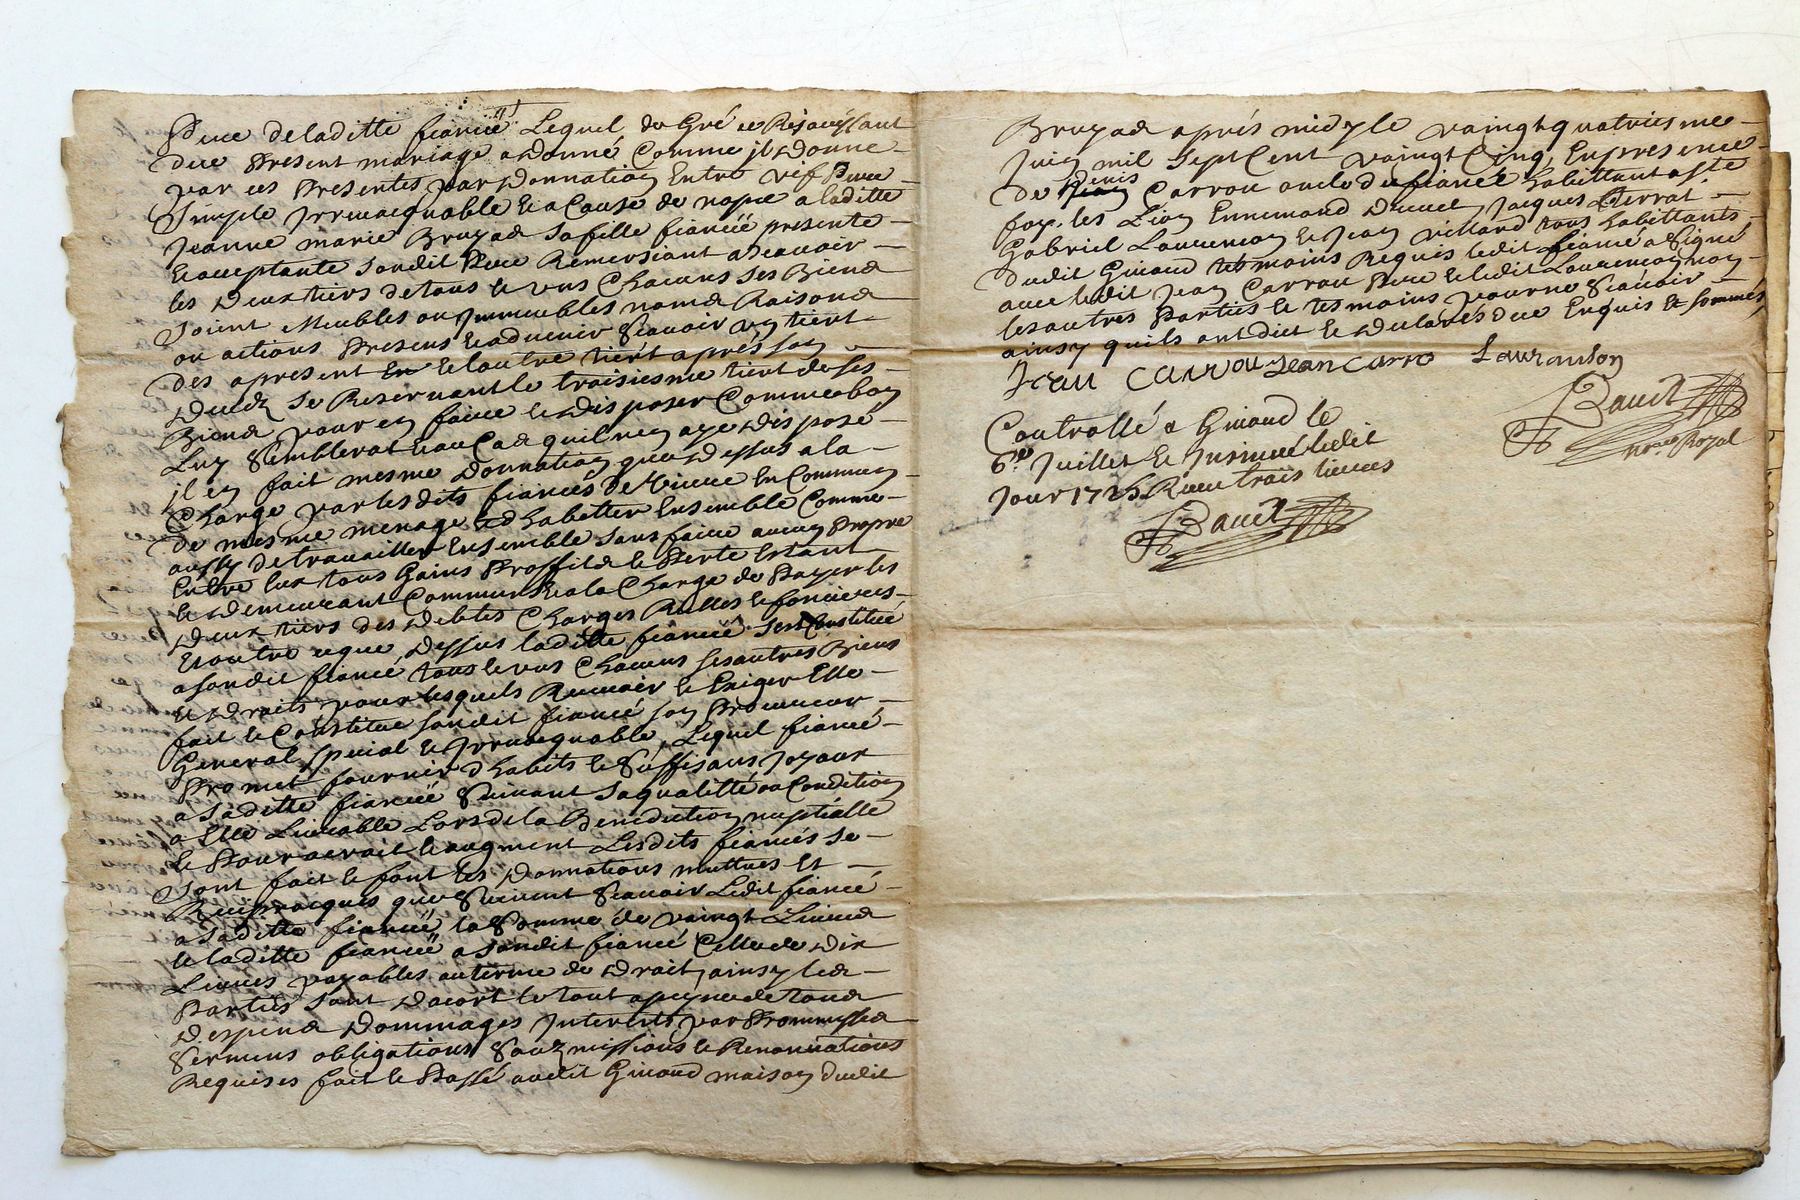 Pere de laditte fiancée Lequel de Gré se Rejouissant
due Present mariage a Donné Comme jl Donne
par ces Presentes par Donnation Entre vif Pure
Simple Irrevocquable Et a Cause de nopce a laditte
Jeanne marie Bruyas sa fille fiancéë presente
Et aceptante sondit Pere Remersiant a Scavoir
les Deux tiers de tous Et vns Chacuns ses Biens
soient Meubles ou Jmmeubles noms Raisons
ou actions Presens Et advenir Scavoir vn tiert
des apresent Et Lautre tiert aprés son
Decez Se Reservant le troisiesme tiert de ses
Biens pour en faire Et Disposer Comme bon
Luy Semblerat Et au Cas quil nen aye Disposé
jl en fait mesme Donnation que Dessus a la
Charge par lesdits fiancés De Vivre En Commun
de mesme menage Et dhabitter Ensemble Comme
aussy de travailler Ensemble sans faire aucun Propre
Entre Eux tous Gains Proffits Et Perte Estant
Et Demeurant Communs Et a la Charge de Payer les
Deux tiers des Debtes Charges Rulles Et foncieres
Et outre ceque Dessus laditte fiancéë sest Constitué
a sondit fiancé tous Et vns Chacuns ses autres Biens
Et Droits pour lesquels Recevoir Et Exiger Elle
fait Et Constitue sondit fiancé son Procureur
General special Et Irrevocquable, Lequel fiancé
Promet fournir dhabits Et Suffisans Joyaux
a Saditte fiancéë Suivant Sa qualitté ou Condition
a Elle Livrable Lors de la Benediction nuptialle
Et Pour acroit Et augment Lesdits fiancés se
Sont fait Et font les Donnations muttues Et
Reciproques que Suivent Scavoir Ledit fiancé
a Saditte fiancéë la Somme de vaingt Livres
Et laditte fiancéë a Sondit fiancé Celle de Dix
Livres payables au terme de Droit, ainsy les
Parties sont Dacort Et tout a peyne de tous
Despens Dommages Interests par Prommesses
Sermens obligations Soubmissions Et Renonciations
Requises fait Et Passé audit Givord maison dudit
Bruyas aprés midy le vaingt quatriesme
Juin mil Sept Cent vaingt Cinq, En presence
de denis Carrou oncle du fiancé habittant a Ste
foy les Lion Ennemond Duvel Jacques Perrat
Gabriel Laurencon Et Jean villard tous habittants
dudit Givord tesmoins Requis ledit fiancé a Signé
avec ledit Jean Carrou Pere Et ledit Laurencon non
les autres Parties Et tesmoins pour ne Scavoir
ainsy quils ont dict Et Declarés de ce Enquis Et sommés,
Jean Carrou Jean Carro Lauranson
Bauet
nore Royal
Controllé a Givord le
6e Juillet Et Insinué ledit
Jour 1725 Receu trois livres
Bauet